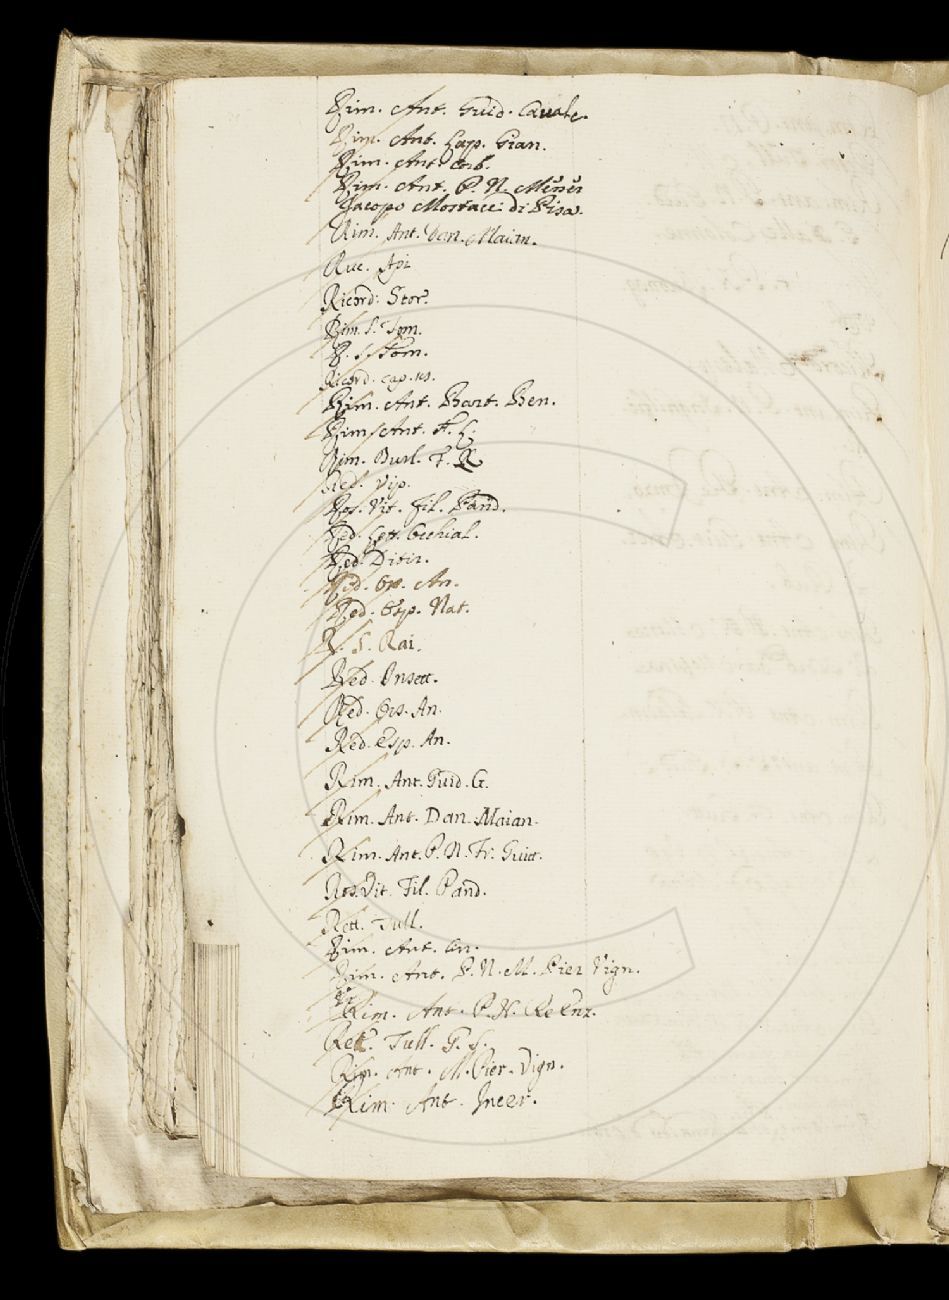 Rim. Ant. Guid. Cavalc.
Rim. Ant. Lap. Gian.
Rim. Ant.
Rim. Ant. P. N. Messer
Jacopo Mostacci di Pisa.
Rim. Ant. Dan. Maian.
Ruc. Api
Ricord: Stor.
Rim. S. Tom.
R. S. Tom.
Ricord. cap.
Rim. Ant. Bart. Ben.
Rim. Ant. F. L.
Rim. Burl. F. R
Red. Vip.
Ros. Vit. Fil. Pand.
Red. Lett. Occhial.
Red. Ditir.
Red. An.
Red. Esp. Nat.
R. S. Rai.
Red. Insett.
Red. Oss. An.
Red. Esp. An.
Rim. Ant. Guid. G.
Rim. Ant. Dan. Maian.
Rim. Ant. P. N. Fr. Guitt.
Ros. Vit. Fil. Pand.
Rett. Tull.
Rim. Ant. In.
Rim. Ant. P. N. M. Pier Vign.
Rim. Ant. P. N. Re Enz.
Rett. Tull. G. S.
Rim. Ant. M. Pier. Vign.
Rim. Ant. Incer.